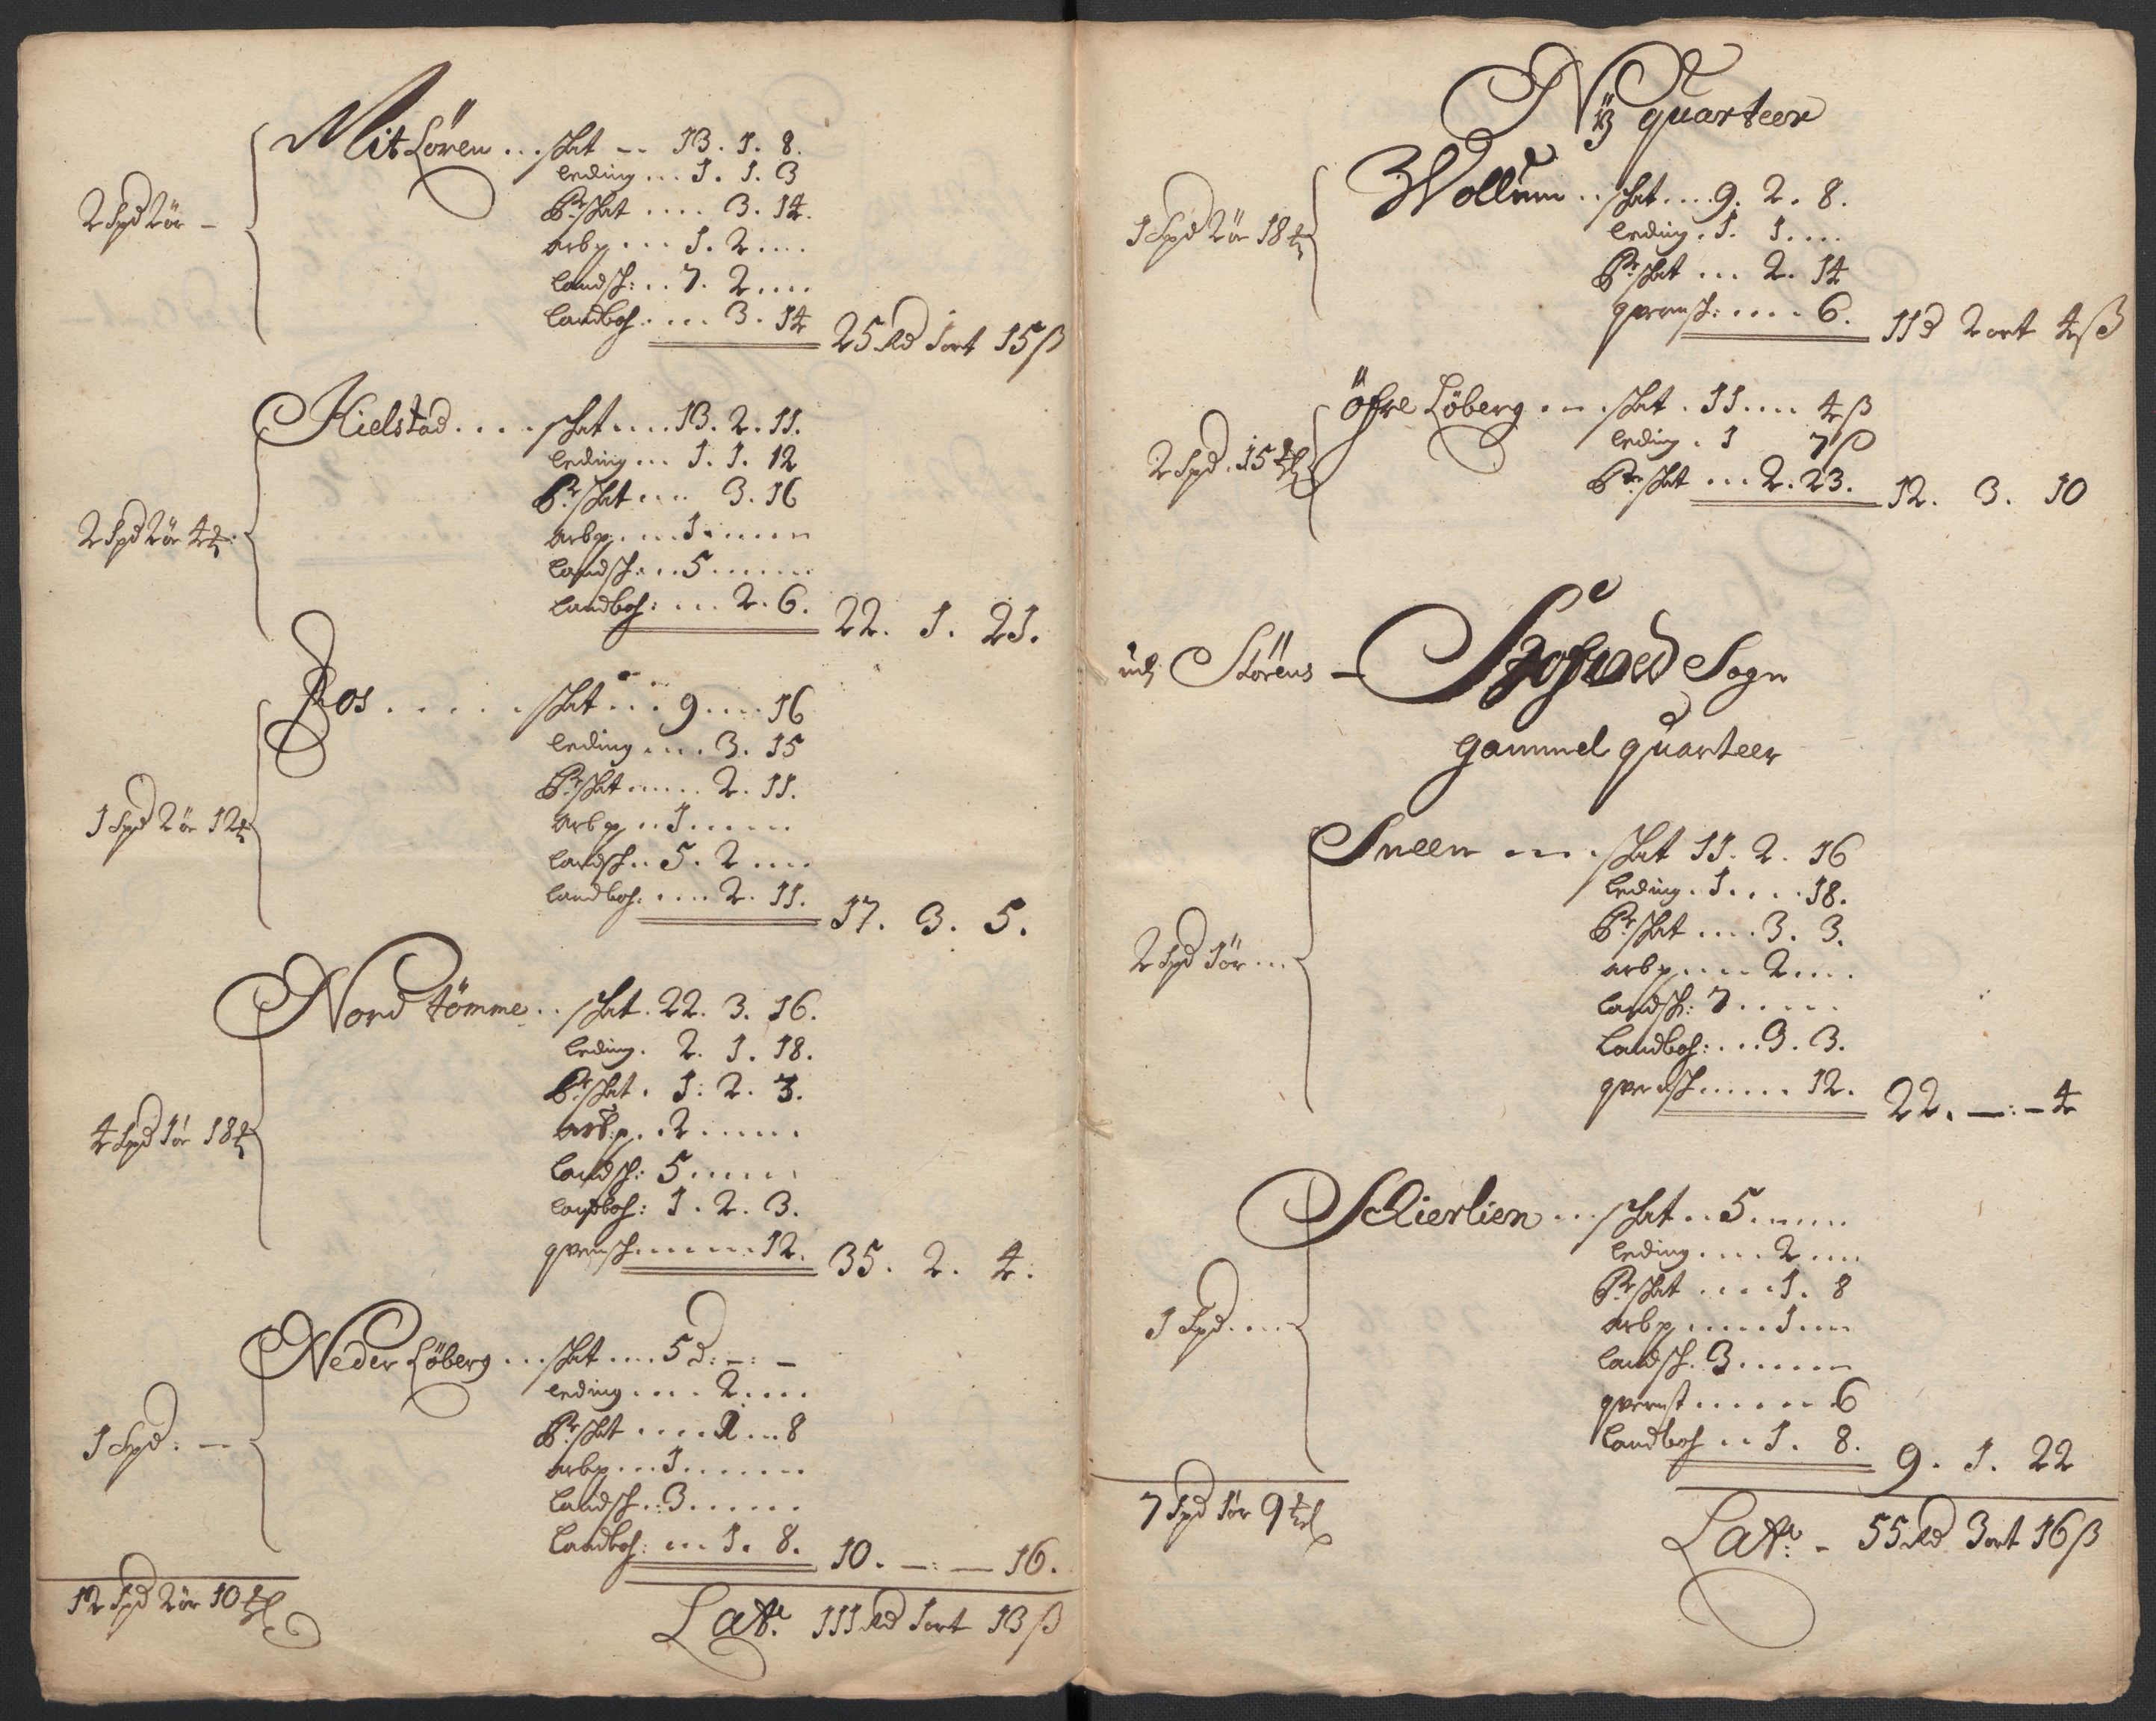 Mit Lören . . . skat -- 13. 1. 8.
leding . . . 1. 1. 3
Pr: skat . . . . 3. 14.
arbp . . . 1. 2 . . . .
landsk: . . 7. 2 . . . .
landboh . . . . 3. 14
2 Spd 2 ör -
25 Rd 1 ort 15 ß
Kielstad . . . . skat . . . . 13. 2. 11.
leding . . . 1. 1. 12
Pr: skat . . . 3. 16
arbp . . . . 1 . . . . .
landsk: . . 5 . . . . . .
landboh: . . . 2. 6.
2 Spd 2 ör 4
22. 1. 21.
Bos . . . . . skat . . . 9 . . . . 16
leding . . . . 3. 15
Pr: skat . . . . . 2. 11.
arbp . . 1 . . . . .
landsk . . 5. 2 . . . .
landboh: . . . . 2. 11.
1 Spd 2 ör 12
17. 3. 5.
Nord tömme . . skat . 22. 3. 16.
leding . 2. 1. 18.
Pr: skat . 1: 2. 3.
arb:p. . 2 . . . . .
landsk: 5 . . . . .
landboh: 1. 2. 3.
qvernsk . . . . . . 12.
4 Spd 1 ör 18
35. 2. 4.
Neder Löberg . . . skat . . . . 5 d: -: -
leding . . . . 2 . . . .
Pr: skat . . . . 1 . . . 8
arbp . . . 1 . . . . . .
landsk . : 3 . . . . . .
Landboh: . . . 1. 8.
1 Spd: -
10. -: - 16.
12 Spd 2 ör 10
Lat: 111 Rd 1 ort 13 ß
Nÿ quarteer
Wollum . . skat . . . . 9. 2. 8.
leding . 1. 1 . . . .
Pr: skat . . . 2. 14
qvernsk: . . . . 6.
1 Spd 2 ör 18
11 d 2 ort 4 ß
Öfre Löberg . . . skat . 11 . . . . 4 ß
leding . 1 7 ß
Pr: skat . . . 2. 23.
2 Spd . 15
12. 3. 10
udj Störens - Sogn
gammel quarteer
Sneen . . . . skat 11. 2. 16
leding . 1 . . . . 18.
Pr: skat . . . . 3. 3.
arbp . . . . 2 . . . .
landsk: 7 . . . . .
Landboh: . . . 3. 3.
qvernsk . . . . . 12.
2 Spd 1 ör . . .
22. -: - 4
Schierlien . . . skat . . 5 . . . . .
leding . . . . 2 . . . .
Pr: skat . . . . 1. 8
arbp . . . . . 1 . . .
landsk . 3 . . . . . .
qvernsk . . . . . . 6
Landboh . . 1. 8.
1 Spd . . . .
9. 1. 22
7 Spd 1 ör 9
Lat: - 55 Rd 3 ort 16 ß